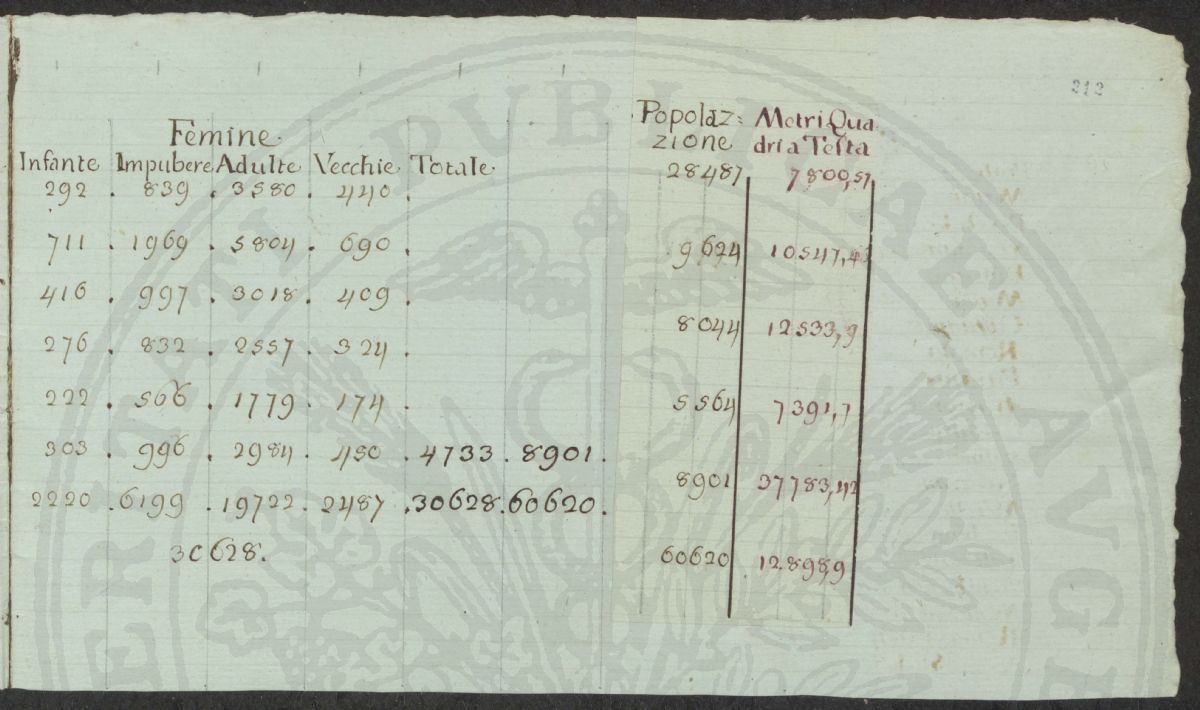 212
Femine
Infante Impubere Adulte Vecchie Totale
292 . 839 . 3580 . 440 .
711 . 1969 . 5804 . 690 .
416 . 997 . 3018 . 409 .
276 . 832 . 2557 . 324 .
222 . 566 . 1779 . 174 .
303 . 996 . 2984 . 450 . 4733 . 8901 .
2220 . 6199 . 19722 . 2487 . 30628 . 60620 .
30628.
Popolaz= Metri Qua
zione dri a Testa
28487 7800,51
9624 10547,43
8044 12533,9
5564 7391,7
8901 37783,42
60620 12.898,9